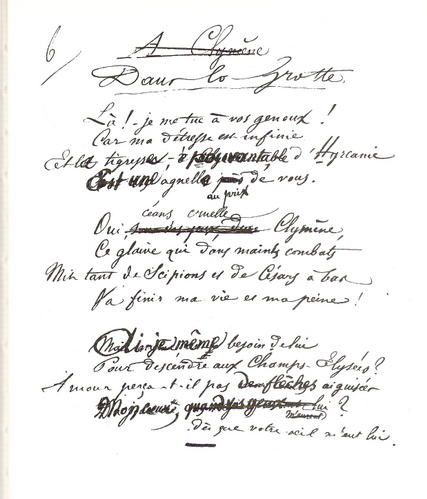 6/
A Clymène
Dans la Grotte.
Là ! - je me tue à vos genoux !
Car ma détresse est infinie
Et la tigresse épouvantable d'Hyrcanie
Est une agnelle de vous.
au prix
céans cruelle
Oui Clymène,
Ce glaive qui dans maints combats
Mit tant de Scipions et de Césars à bas
Va finir ma vie et ma peine !
Ai-je même besoin de lui
Pour descendre aux Champs-Elysées ?
Amour perça-t-il pas de flèches aiguisées
Mon coeur, quand vos yeux lui ?
m'eurent
dès que votre oeil m'eut lui.